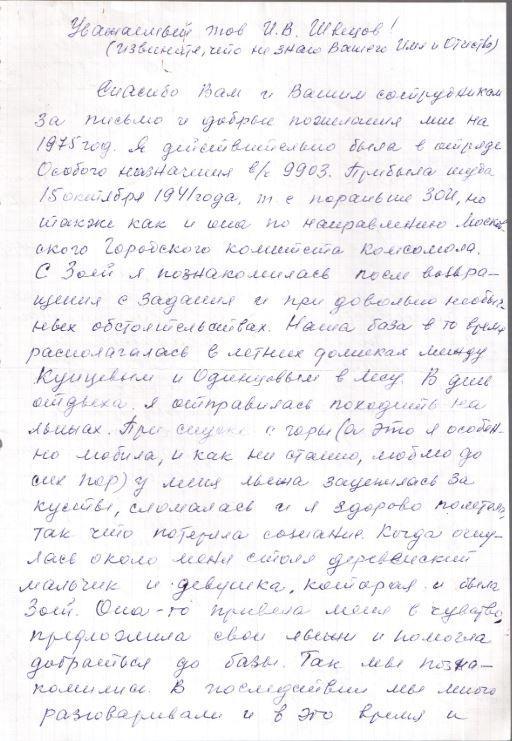 Уважаемый тов И.В. Швецов!
(Извините, что не знаю Вашего Имя и Отиство)
Спасибо Вам и Вашим сотрудникам
за письмо и добрые пожелания мне на
1975 год. Я действительно была в отряде
Особого назначения в/ч 9903. Прибыла туда
15 октября 1941 года, т е пораньше Зои, но
также как и она по направлению Москов-
ского Городского комитета комсомола.
С Зоей я познакомилась после возвра-
щения с задания и при довольно необыч-
ных обстоятельствах. Наша база в то время
располагалась в летних домиках между
Кунцевым и Одинцовым в лесу. В дни
отдыха я отправилась походить на
лыжах. При спуске с горы (а это я особен-
но любила, и как ни станно, люблю до
сих пор) у меня лыжа зацепилась за
кусты, сломалась и я здорово полетела,
так что потеряла сознание. Когда очну-
лась около меня стоял деревенский
мальчик и девушка, которая и была
Зоей. Она-то привела меня в чувство,
предложила свои лыжи и помогла
добраться до базы. Так мы позна-
комились. В последствии мы много
разговаривали и в это время и